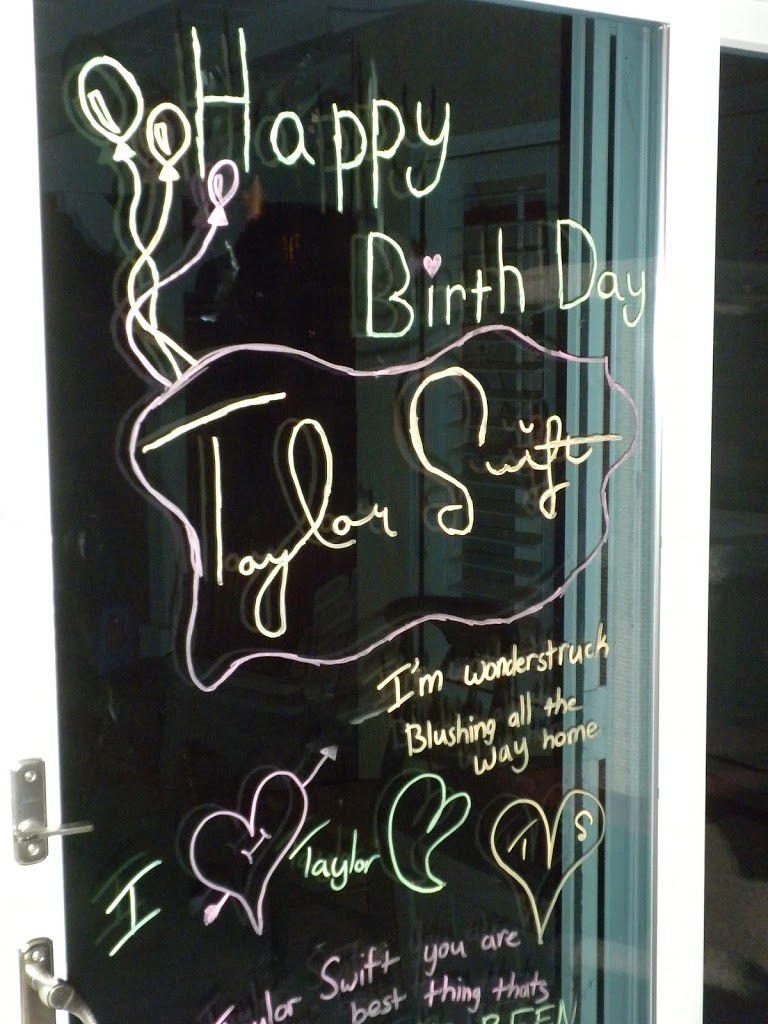 Happy
Birth Day
Taylor Swift
I'm wonderstruck
Blushing all the
way home
I Taylor
T S
Taylor Swift you are
best thing thats
BEEN